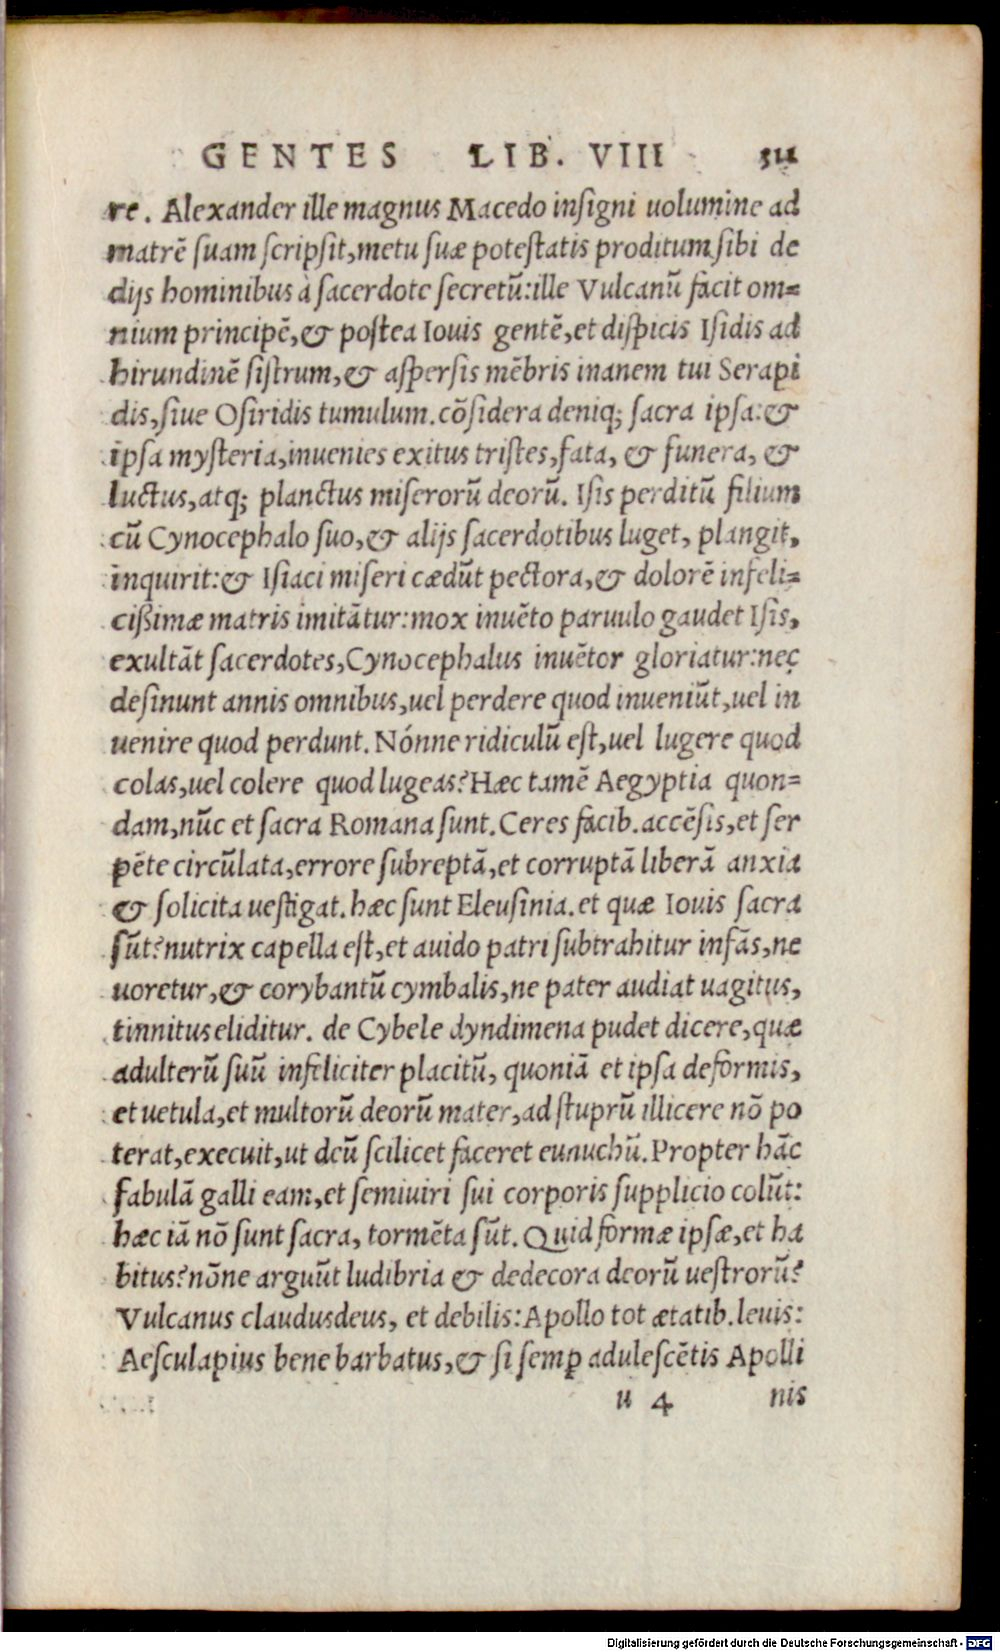 GENTES LIB. VIII 311
re. Alexander ille magnus Macedo insigni uolumine ad
matrē suam scripsit, metu suæ potestatis proditum sibi de
dijs hominibus à sacerdote secretū: ille Vulcanū facit om=
nium principē, & postea Iouis gentē, et dispicis Isidis ad
hirundinē sistrum, & aspersis mēbris inanem tui Serapi
dis, siue Osiridis tumulum. cōsidera deniq; sacra ipsa: &
ipsa mysteria, inuenies exitus tristes, fata, & funera, &
luctus, atq; planctus miserorū deorū. Isis perditū filium
cū Cynocephalo suo, & alijs sacerdotibus luget, plangit,
inquirit: & Isiaci miseri cædūt pectora, & dolorē infeli=
cißimæ matris imitātur: mox inuēto paruulo gaudet Isis,
exultāt sacerdotes, Cynocephalus inuētor gloriatur: nec
desinunt annis omnibus, uel perdere quod inueniūt, uel in
uenire quod perdunt. Nónne ridiculū est, uel lugere quod
colas, uel colere quod lugeas? Hæc tamē Aegyptia quon=
dam, nūc et sacra Romana sunt. Ceres facib. accēsis, et ser
pēte circūlata, errore subreptā, et corruptā liberā anxia
& solicita uestigat. hæc sunt Eleusinia. et quæ Iouis sacra
sūt? nutrix capella est, et auido patri subtrahitur infās, ne
uoretur, & corybantū cymbalis, ne pater audiat uagitus,
tinnitus eliditur. de Cybele dyndimena pudet dicere, quæ
adulterū suū infeliciter placitū, quoniā et ipsa deformis,
et uetula, et multorū deorū mater, ad stuprū illicere nō po
terat, execuit, ut deū scilicet faceret eunuchū. Propter hāc
fabulā galli eam, et semiuiri sui corporis supplicio colūt:
hæc iā nō sunt sacra, tormēta sūt. Quid formæ ipsæ, et ha
bitus? nōne arguūt ludibria & dedecora deorū uestrorū?
Vulcanus claudusdeus, et debilis: Apollo tot ætatib. leuis:
Aesculapius bene barbatus, & si semp adulescētis Apolli
u 4 nis
Digitalisierung gefördert durch die Deutsche Forschungsgemeinschaft - DFG